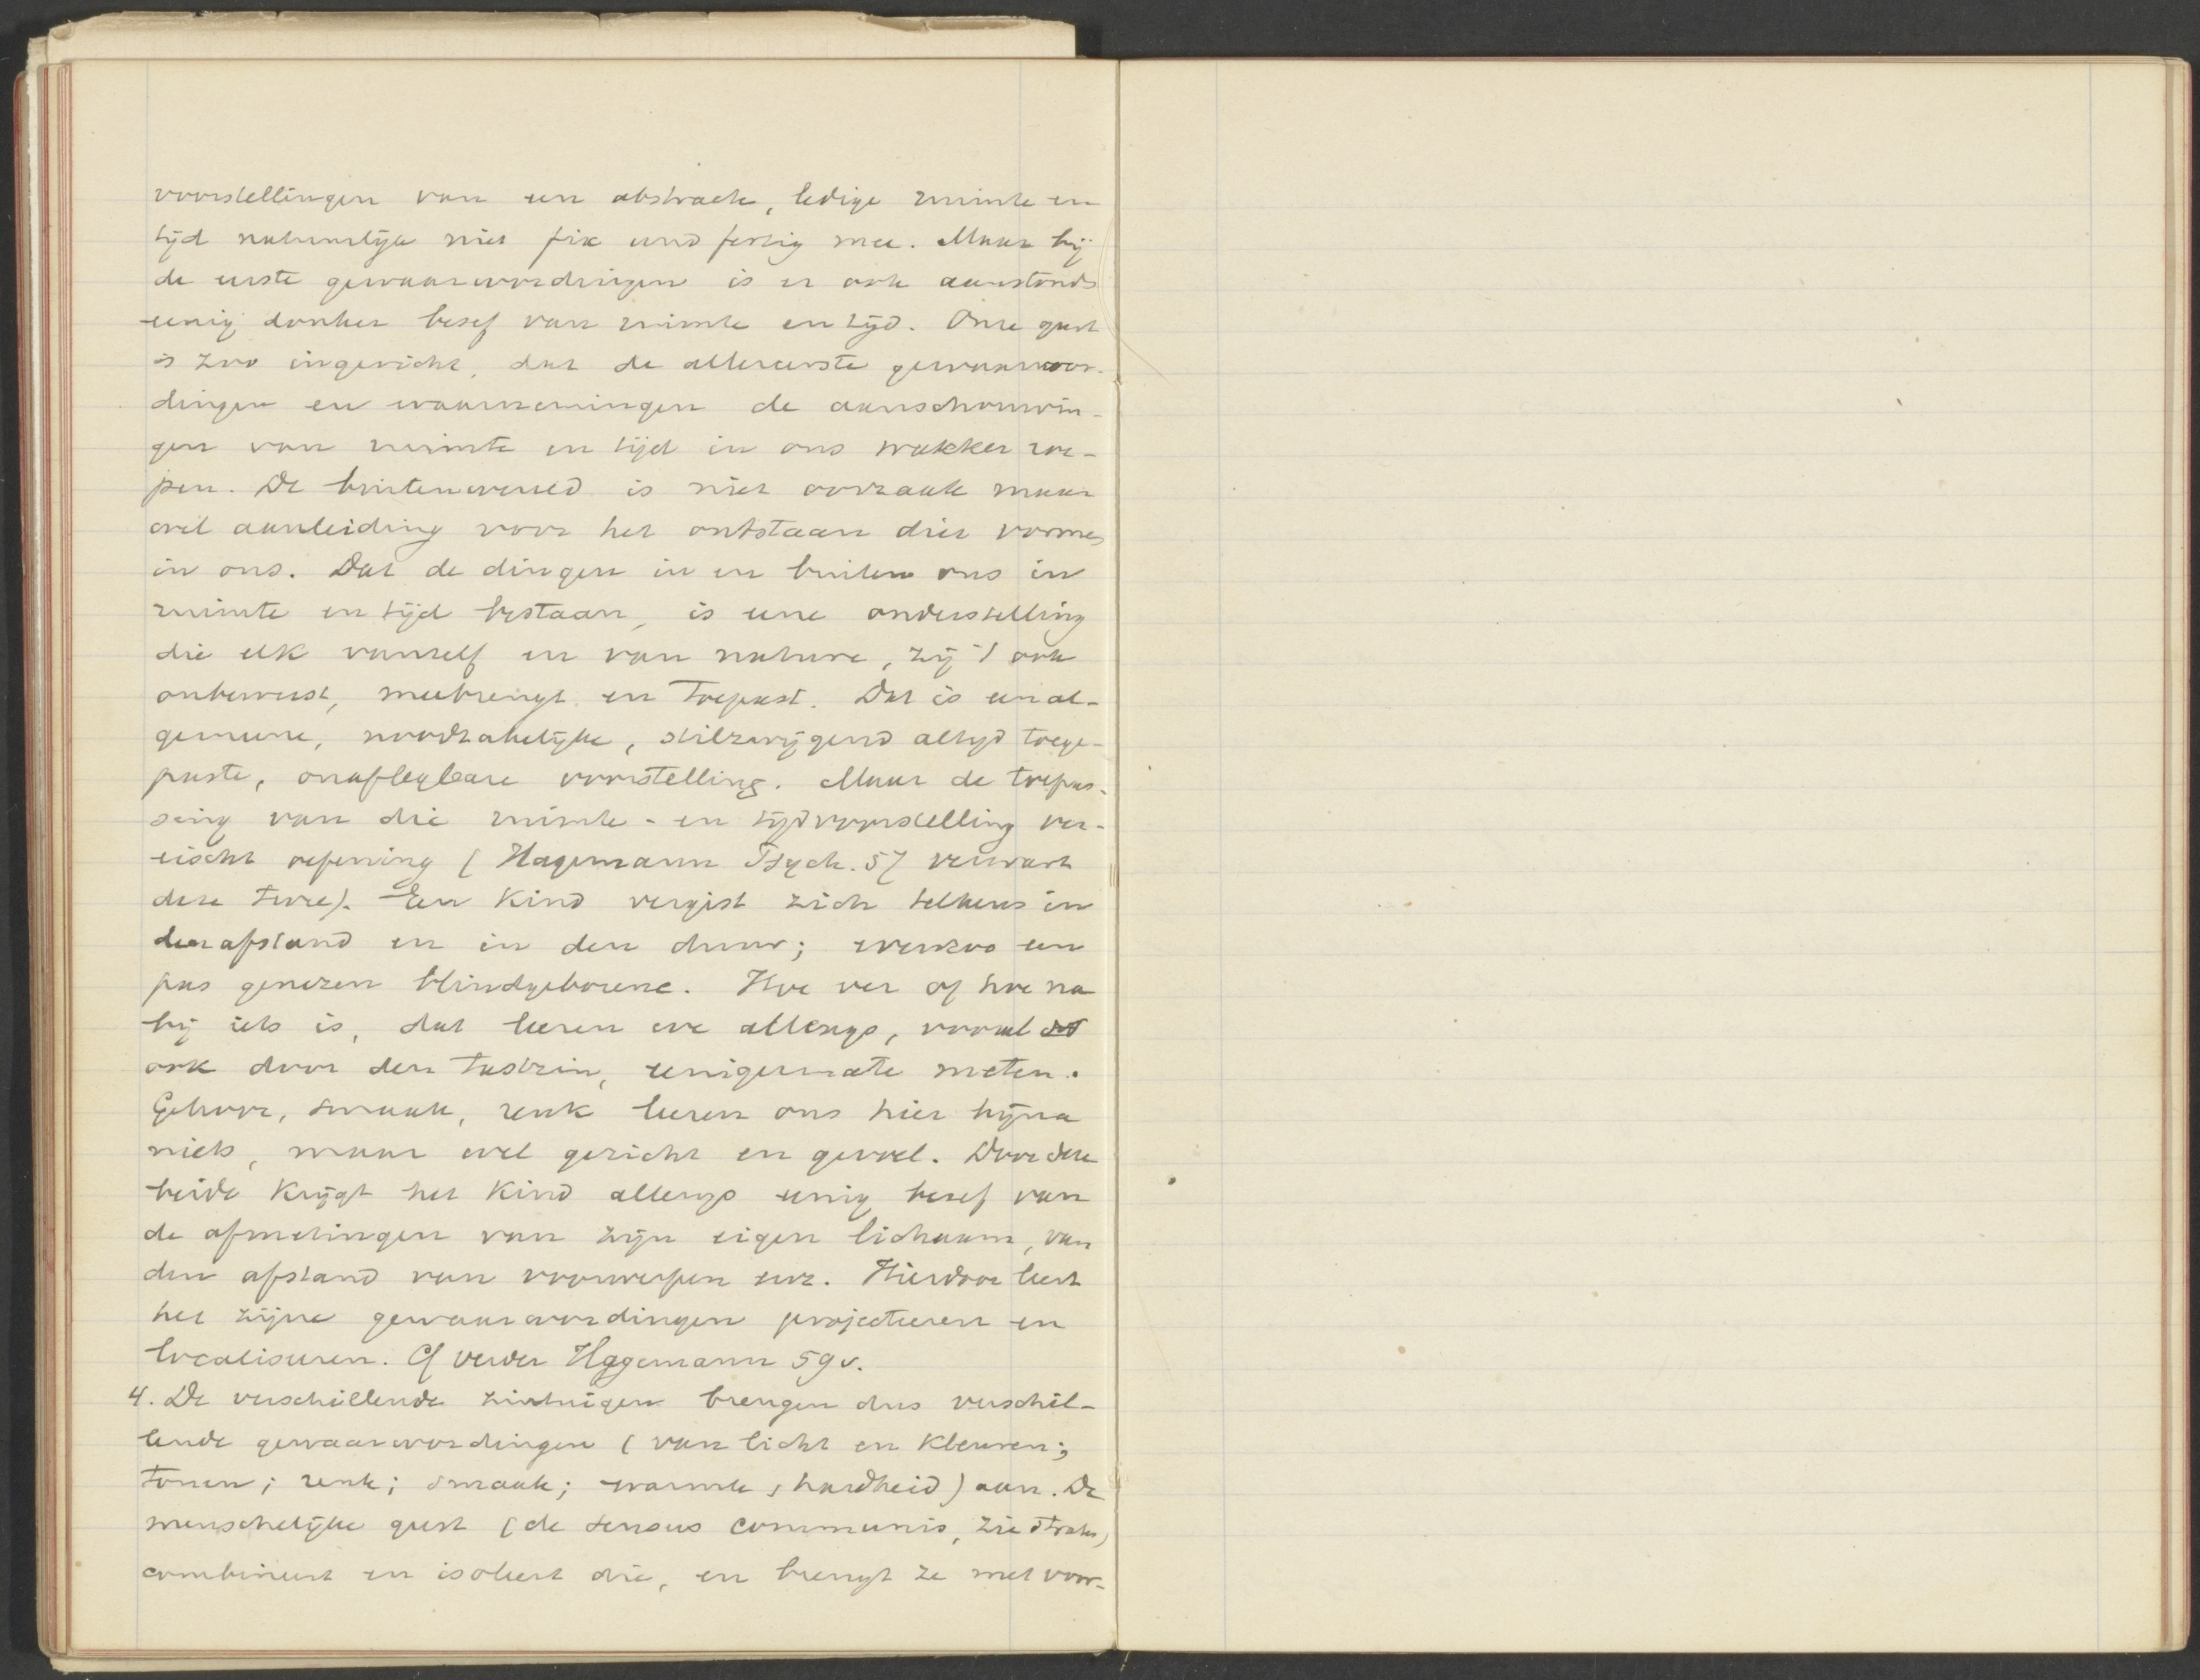 voorstellingen van een abstracte, ledige ruimte en
tijd natuurlijk niet fix und fertig mee. Maar bij
de eerste gewaarwordingen is er ook aanstonds
eenig donker besef van ruimte en tijd. Onze geest
is zoo ingericht, dat de allereerste gewaarwor-
dingen en waarnemingen de aanschouwin-
gen van ruimte en tijd in ons wakker roe-
pen. De buitenwereld is niet oorzaak maar
wel aanleiding voor het ontstaan dier vormen
in ons. Dat de dingen in en buiten ons in
ruimte en tijd bestaan, is eene onderstelling
die elk vanzelf en van nature, zij 't ook
onbewust, meebrengt en toepast. Dat is een al-
gemeene, noodzakelijke, stilzwijgend altijd toege-
paste, onaflegbare voorstelling. Maar de toepas-
sing van die ruimte- en tijdvoorstelling ver-
eischt oefening (Hagemann Psych. 57 verwart
deze twee). Een kind vergist zich telkens in
den afstand en in den duur; evenzoo een
pas genezen blindgeborene. Hoe ver of hoe na
bij iets is, dat leeren we allengs, vooral
ook door den tastzin, eenigermate meten.
Gehoor, smaak, reuk leeren ons hier bijna
niets, maar wel gezicht en gevoel. Door deze
beide krijgt het kind allengs eenig besef van
de afmetingen van zijn eigen lichaam, van
den afstand van voorwerpen enz. Hierdoor leert
het zijne gewaarwordingen projecteeren en
localiseeren. Cf verder Hagemann 59v.
4. De verschillende zintuigen brengen dus verschil-
lende gewaarwordingen (van licht en kleuren;
tonen; reuk; smaak; warmte, hardheid) aan. De
menschelijke geest (de sensus communis, zie straks)
combineert en isoleert die, en brengt ze met voor-